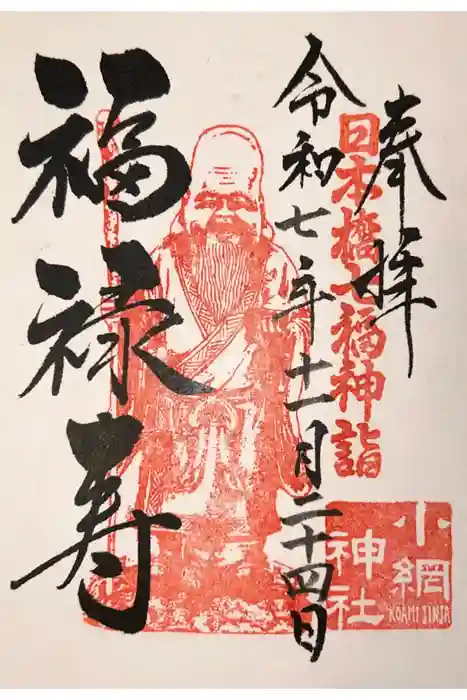 奉拝
日本橋七福神詣
令和七年十一月二十四日
福禄寿
小網
神社
KOAMI JINJA